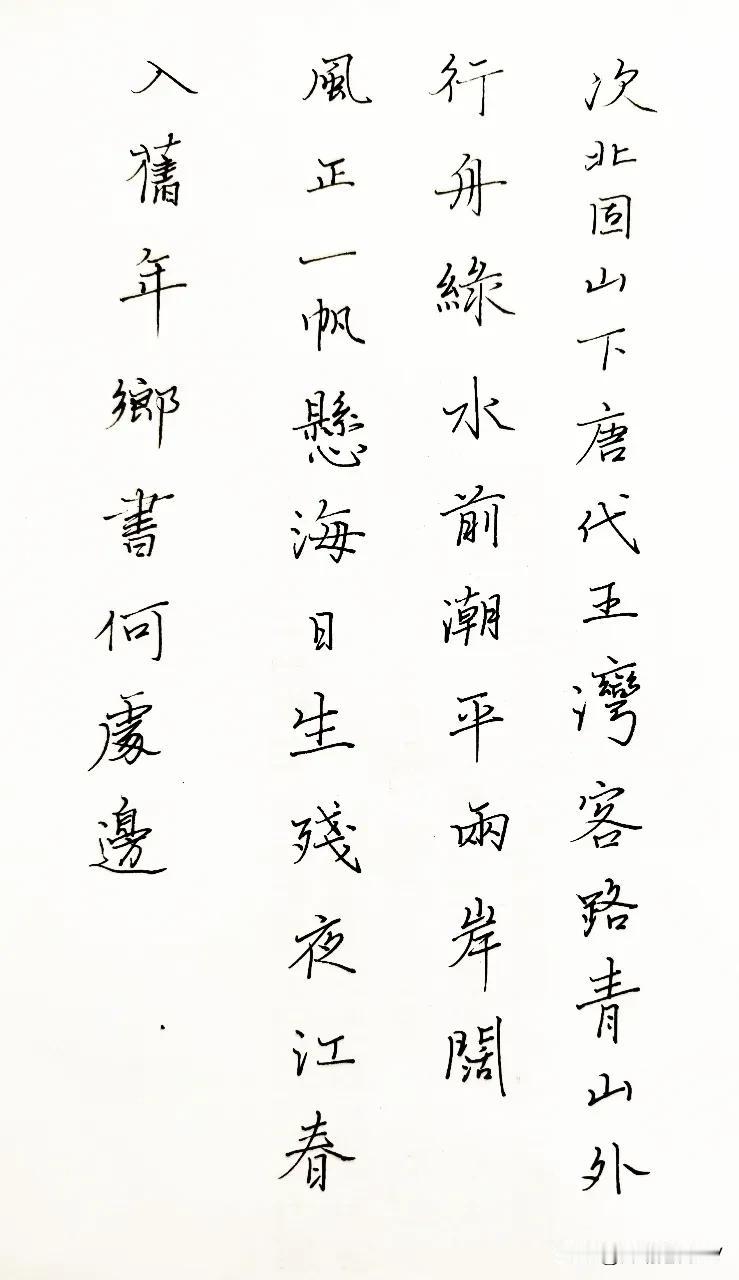 次北固山下唐代王灣客路青山外
行舟綠水前潮平兩岸闊
風正一帆懸海日生殘夜江春
入舊年鄉書何處邊